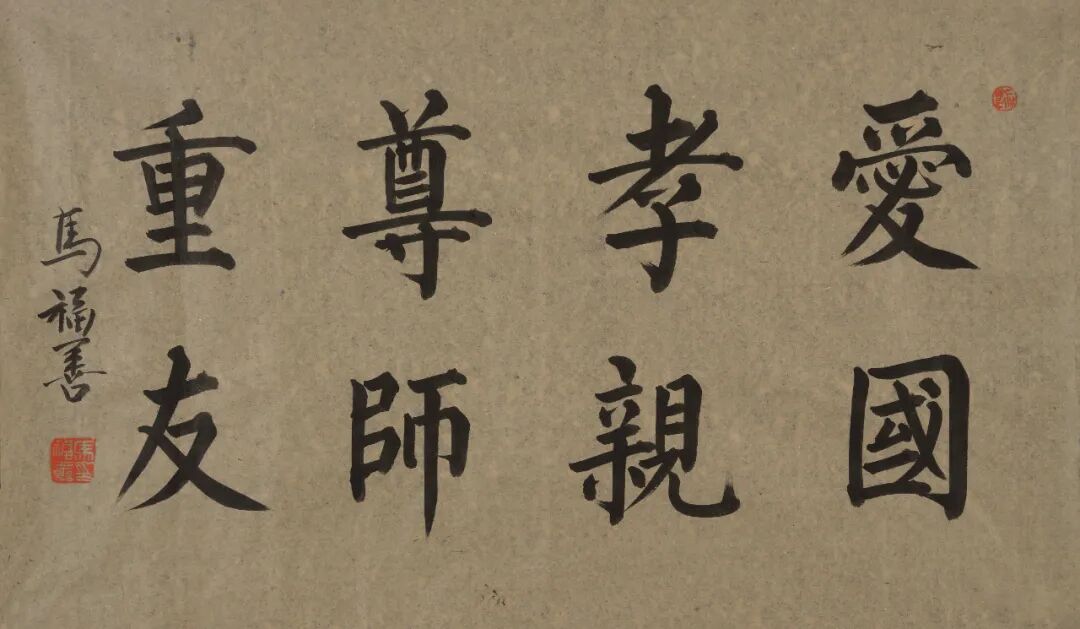 愛國
孝親
尊師
重友
馬福善